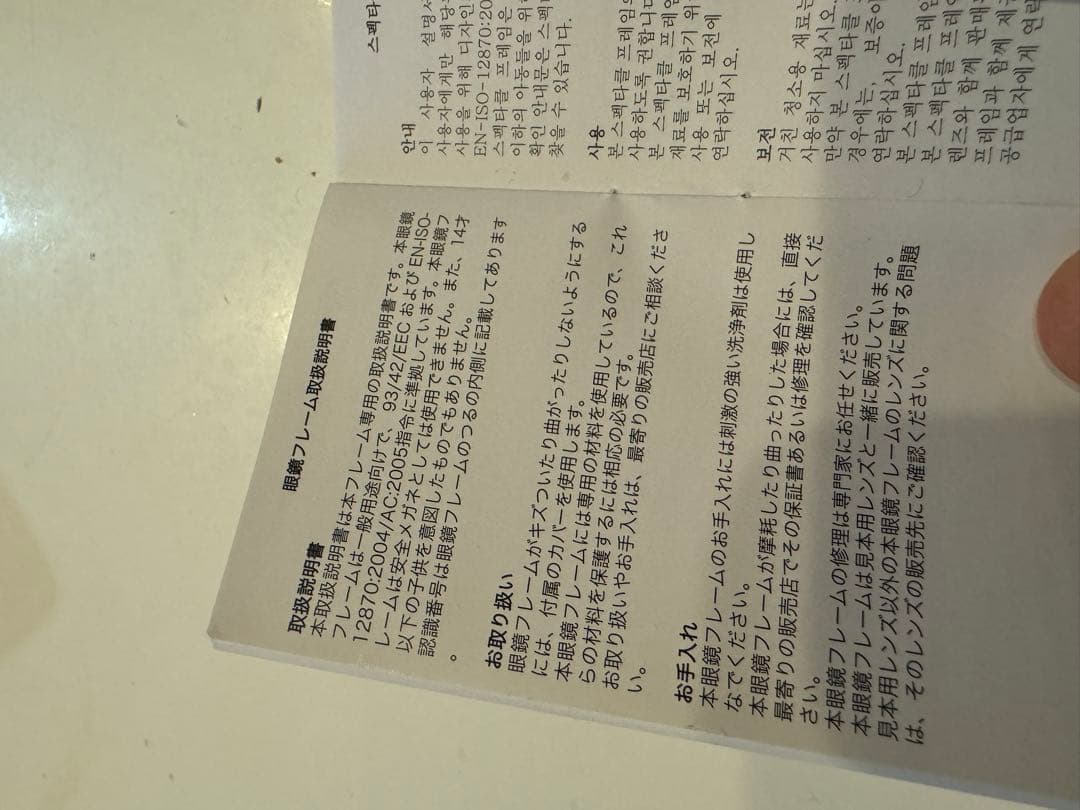 眼鏡フレーム取扱説明書
取扱説明書
本取扱説明書は本フレーム専用の取扱説明書です。本眼鏡
フレームは一般用途向けで、93/42/EEC および EN-ISO-
12870:2004/AC:2005指令に準拠しています。本眼鏡フ
レームは安全メガネとしては使用できません。また、14才
以下の子供を意図したものでもありません。
認識番号は眼鏡フレームのつるの内側に記載してあります
。
お取り扱い
眼鏡フレームがキズついたり曲がったりしないようにする
には、付属のカバーを使用します。
本眼鏡フレームには専用の材料を使用しているので、これ
らの材料を保護するには相応の必要です。
お取り扱いやお手入れは、最寄りの販売店にご相談くださ
い。
お手入れ
本眼鏡フレームのお手入れには刺激の強い洗浄剤は使用し
なでください。
本眼鏡フレームが摩耗したり曲ったりした場合には、直接
最寄りの販売店でその保証書あるいは修理を確認してくだ
さい。
本眼鏡フレームの修理は専門家にお任せください。
本眼鏡フレームは見本用レンズと一緒に販売しています。
見本用レンズ以外の本眼鏡フレームのレンズに関する問題
は、そのレンズの販売先にご確認ください。
스펙타
안내
이 사용자 설명서
사용자에게만 해당
사용을 위해 디자인
EN-ISO-12870:20
스펙타클 프레임은
이하의 아동들을 위
확인 안내문은 스펙
찾을 수 있습니다.
사용
본 스펙타클 프레임의
사용하도록 권합니다
본 스펙타클 프레임
재료를 보호하기 위
사용 또는 보전에
연락하십시오.
보전
거친 청소용 재료는
사용하지 마십시오.
만약 본 스펙타클
경우에는, 보증이
연락하십시오.
본 스펙타클 프레임
본 스펙타클 프레
렌즈와 함께 판매
프레임과 함께 제
공급업자에게 연락